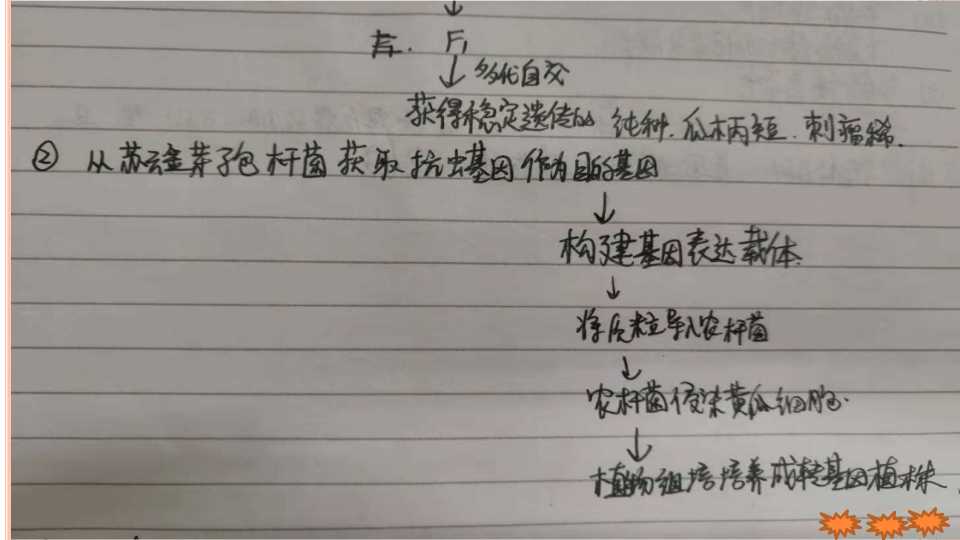 F₁
↓ 多代自交
获得稳定遗传的 纯种. 瓜柄短. 刺瘤稀.
② 从苏云金芽孢杆菌获取抗虫基因作为目的基因
↓
构建基因表达载体
↓
将质粒导入农杆菌
↓
农杆菌侵染黄瓜细胞.
↓
植物组培培养成转基因植株.